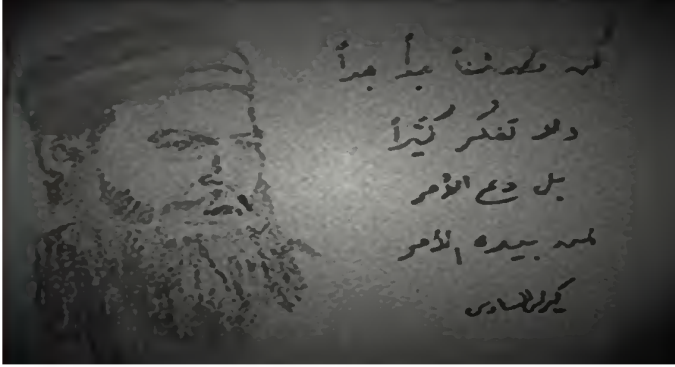 كن مطمئناً جداً جداً
ولا تفكر كثيراً
بل دع الأمر
لمن بيده الأمر
كيرلس السادس